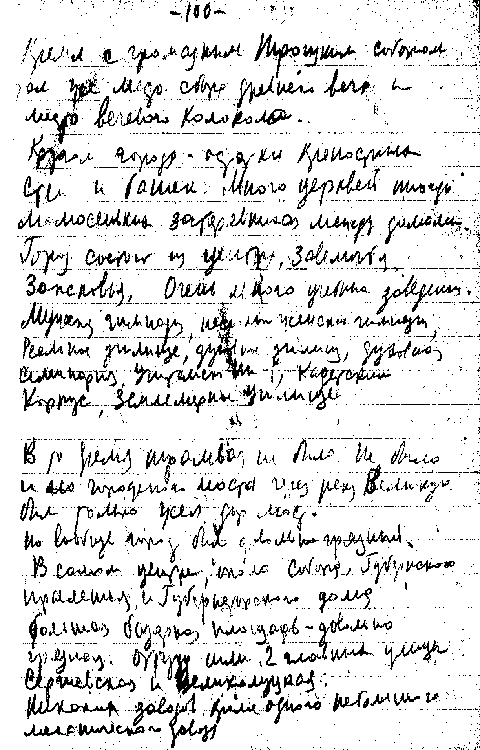 -100-
Кремль с громадным Троицким собором
где место сбора древнего веча и
место вечевого колокола.
Кругом города - остатки крепостных
Стен и башен. Много церквей иногда
застрявших между домами.
Город состоит из центра, Завеличья
Запсковья. Очень много учебных заведений.
Мужская гимназия, женские гимназии,
Реальное училище, духовное училище, духовная
Семинария, Учительский, Кадетский
Корпус, Землемерное училище
В то время трамвая не было. Не было
и городского моста через реку Великую
был только жел. дор. мост.
Но вообще город был довольно грязный.
В самом центре, около собора, Губернского
правления, и Губернаторского дома
большая базарная площадь - довольно
грязная. Отсюда шли 2 главные улицы
Сергиевская и Великолуцкая.
Никаких заводов кроме одного небольшого
механического завода